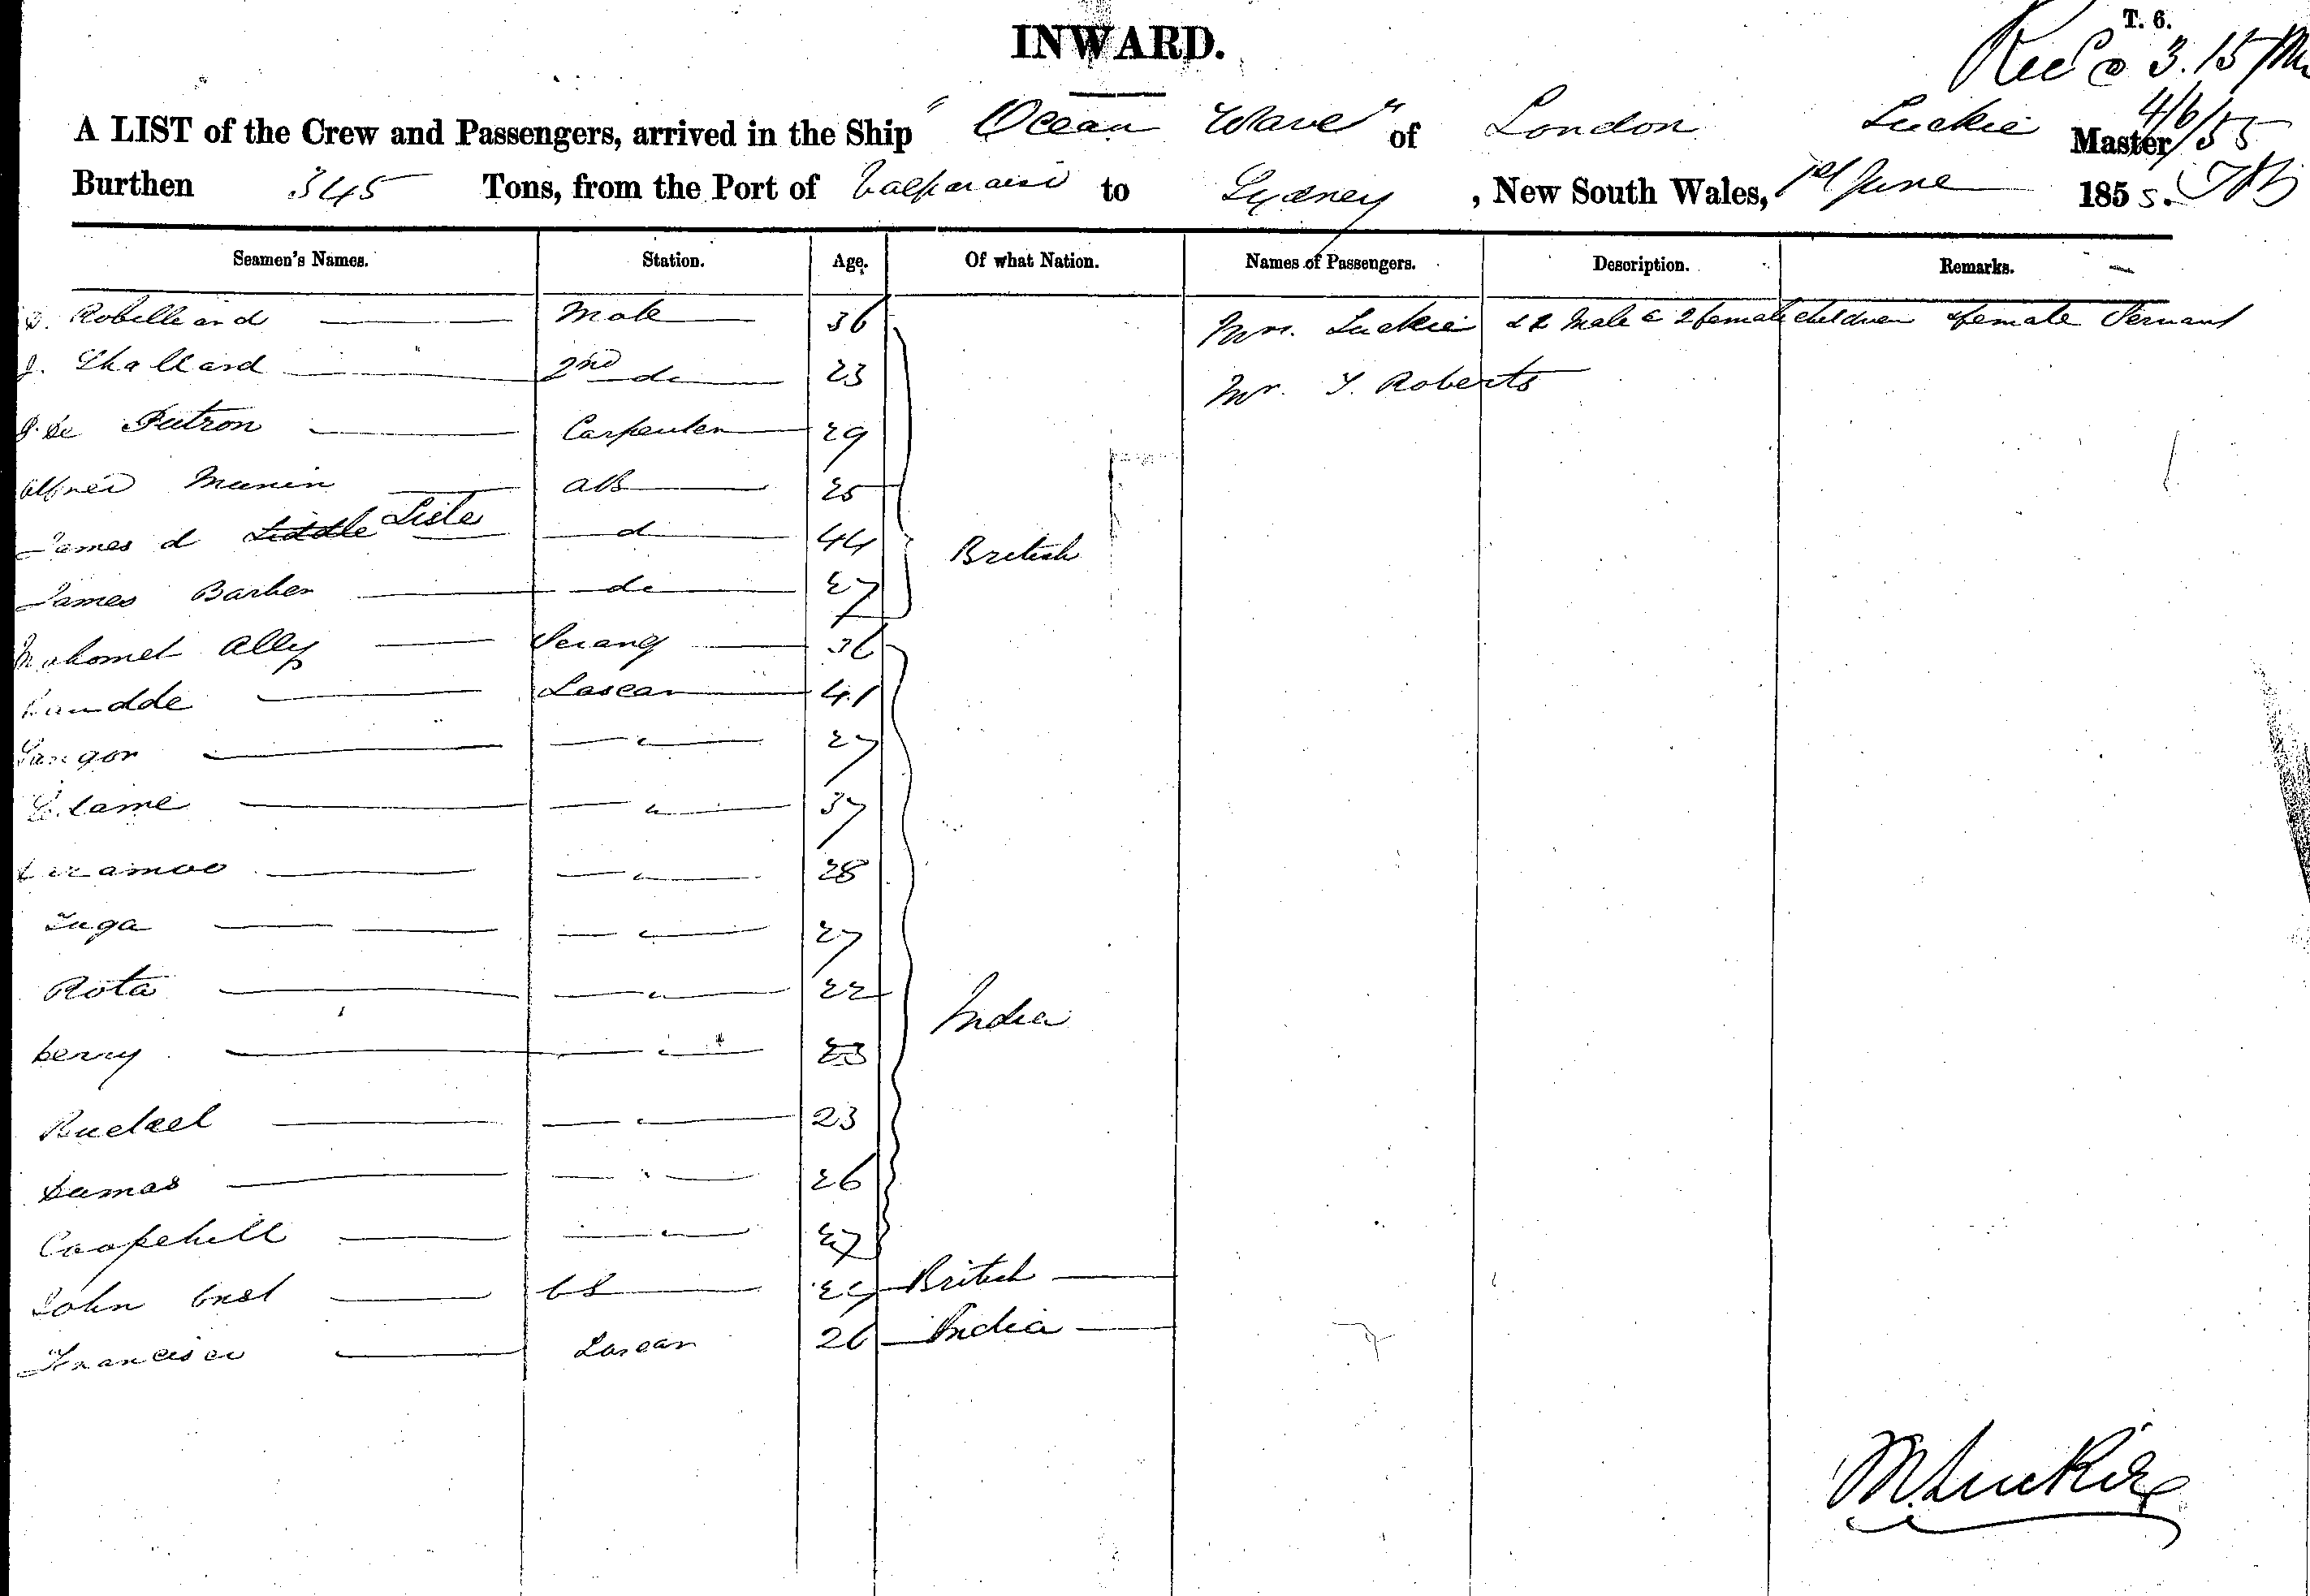 INWARD.
T. 6.
Recd @ 3.15 PM
4/6/55
A LIST of the Crew and Passengers, arrived in the Ship "Ocean Wave" of London Luckie Master
Burthen 345 Tons, from the Port of Valparaiso to Sydney, New South Wales, 1st June 1855.
Seamen's Names. Station. Age. Of what Nation. Names of Passengers. Description. Remarks.
Robilliard Mate 36 Mrs. Luckie & 2 Male & 2 female children & female Servant
J. Shallard 2nd do 23 Mr. Roberts
J. De Putron Carpenter 29
Alfred AB 25
James d Liddle Lisle d 44 British
James Barber do 27
Mahomet Ally Serang 36
Lascar 41
Sangor " 27
" 37
" 28
Tuga " 27
Rota " 22 India
berry " 23
" 23
Dumas " 26
Coopehill " 27
John British
Francisco Lascar 26 India
M. Luckie